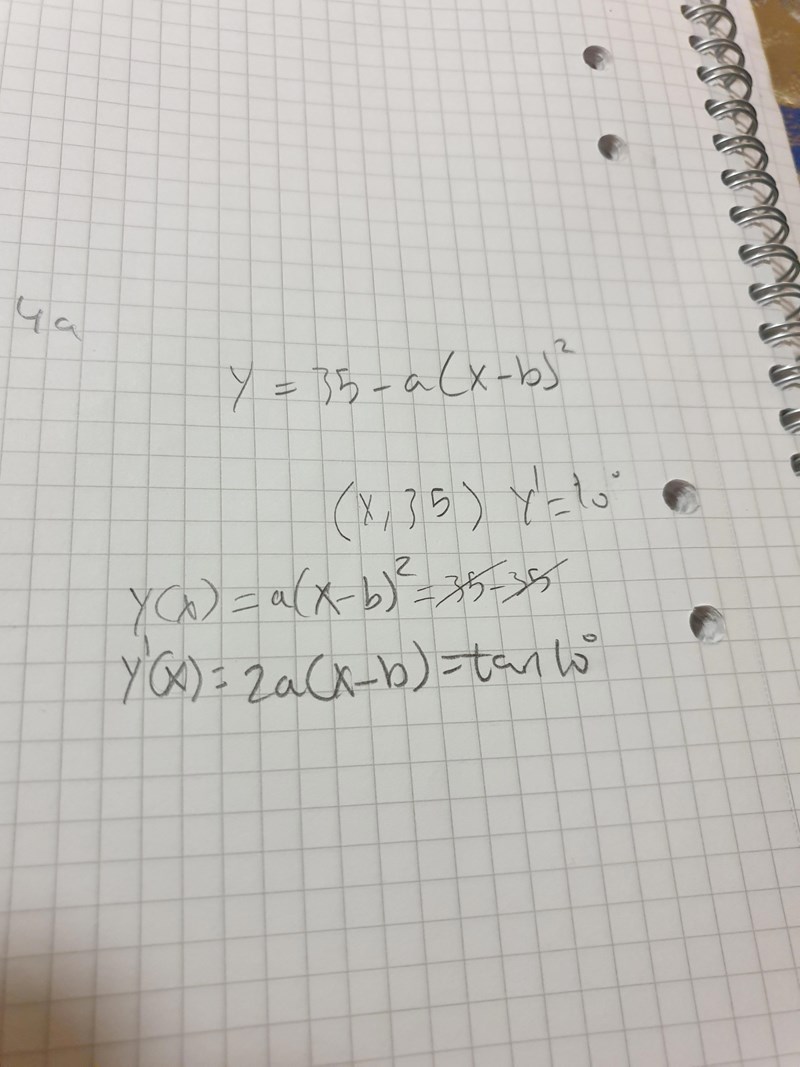 4a
y = 35 - a(x-b)²
(x, 35) y' = 10°
y(x) = a(x-b)² = 35-35
y'(x) = 2a(x-b) = tan 10°